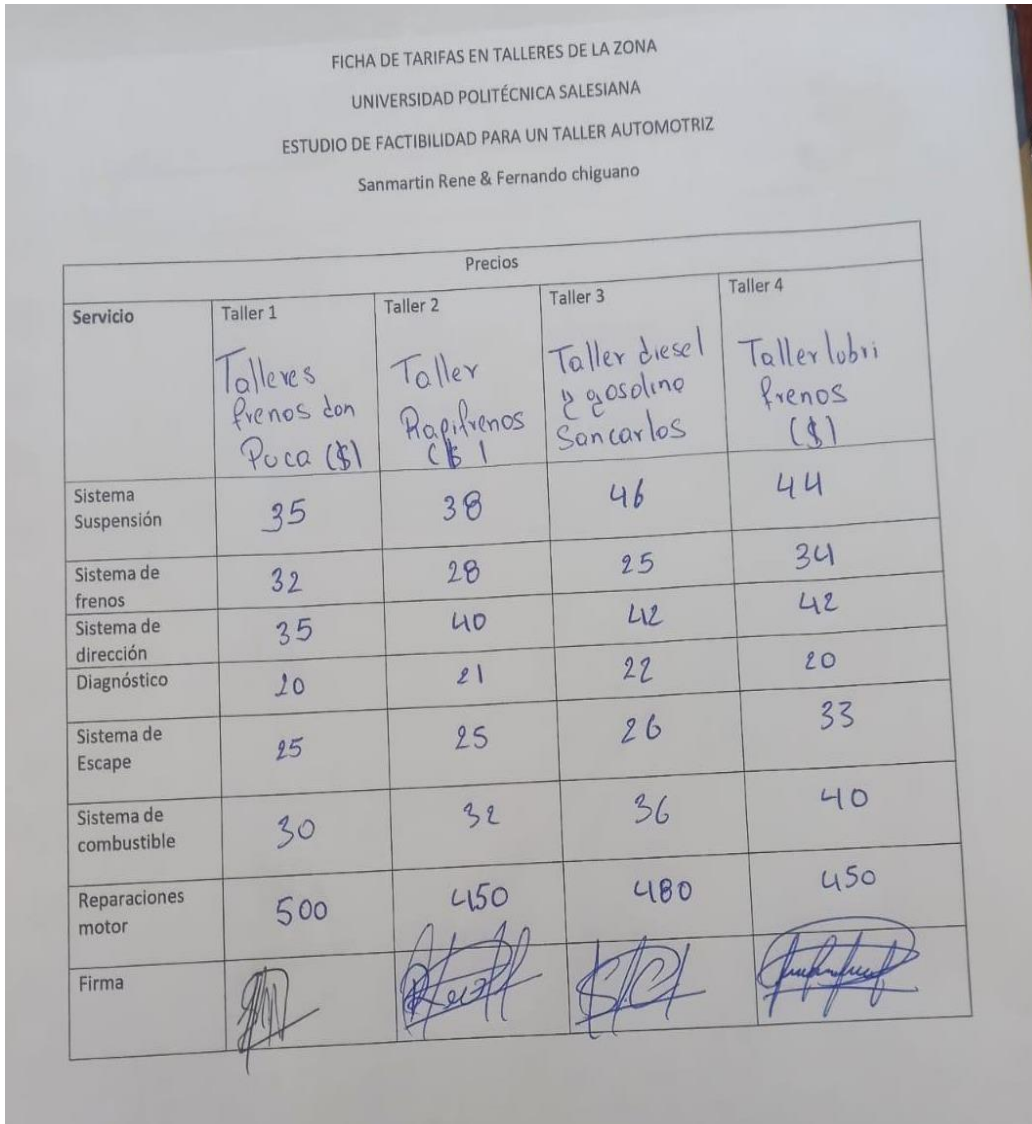 FICHA DE TARIFAS EN TALLERES DE LA ZONA
UNIVERSIDAD POLITÉCNICA SALESIANA
ESTUDIO DE FACTIBILIDAD PARA UN TALLER AUTOMOTRIZ
Sanmartin Rene & Fernando chiguano
Precios
Servicio Taller 1 Taller 2 Taller 3 Taller 4
Talleres
frenos don
Puca ($)
Taller
Rapifrenos
($)
Taller diesel
y gasolina
Sancarlos
Taller lubri
frenos
($)
Sistema
Suspensión
35 38 46 44
Sistema de
frenos
32 28 25 34
Sistema de
dirección
35 40 42 42
Diagnóstico 20 21 22 20
Sistema de
Escape
25 25 26 33
Sistema de
combustible
30 32 36 40
Reparaciones
motor
500 450 480 450
Firma